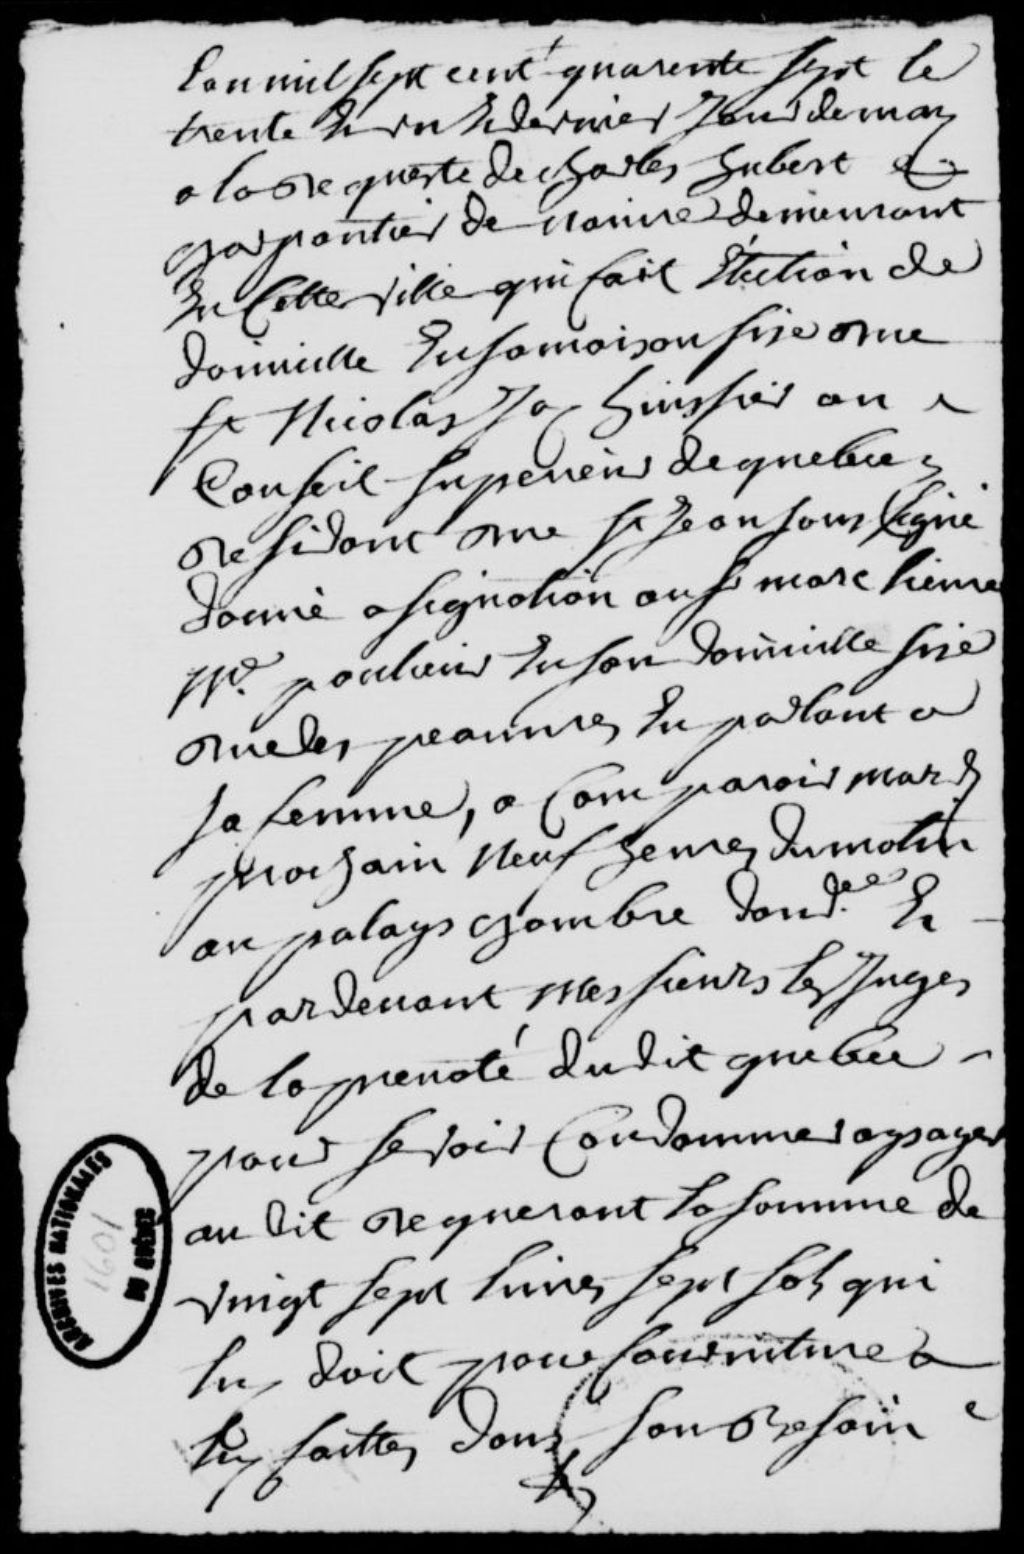 Lan mil sept cent quarente sept le
trente Et un Et dernier Jour de may
a la Requeste de charles hubert
charpantier de navire demeurant
En Cette ville qui fait Election de
domicille En sa maison sise Rue
st Nicolas Jay huissier au
Conseil superieur de quebec
Residant Rue st Jean sous signé
donné asignation au sr marc
poulain En son domicille sise
Rue des peauvres En parlant a
sa femme, a Comparoir mardy
prochain Neuf heures du matin
au palays chambre daud.ce Et
pardevant Messieurs les Juges
de la prevoté dudit quebec
pour se voir Condamner a payer
au dit Requerant la somme de
vingt sept livres sept sols qui
luy doit pour fourniture a
luy faittes dans son Besoin
ARCHIVES NATIONALES
DU QUÉBEC
1601